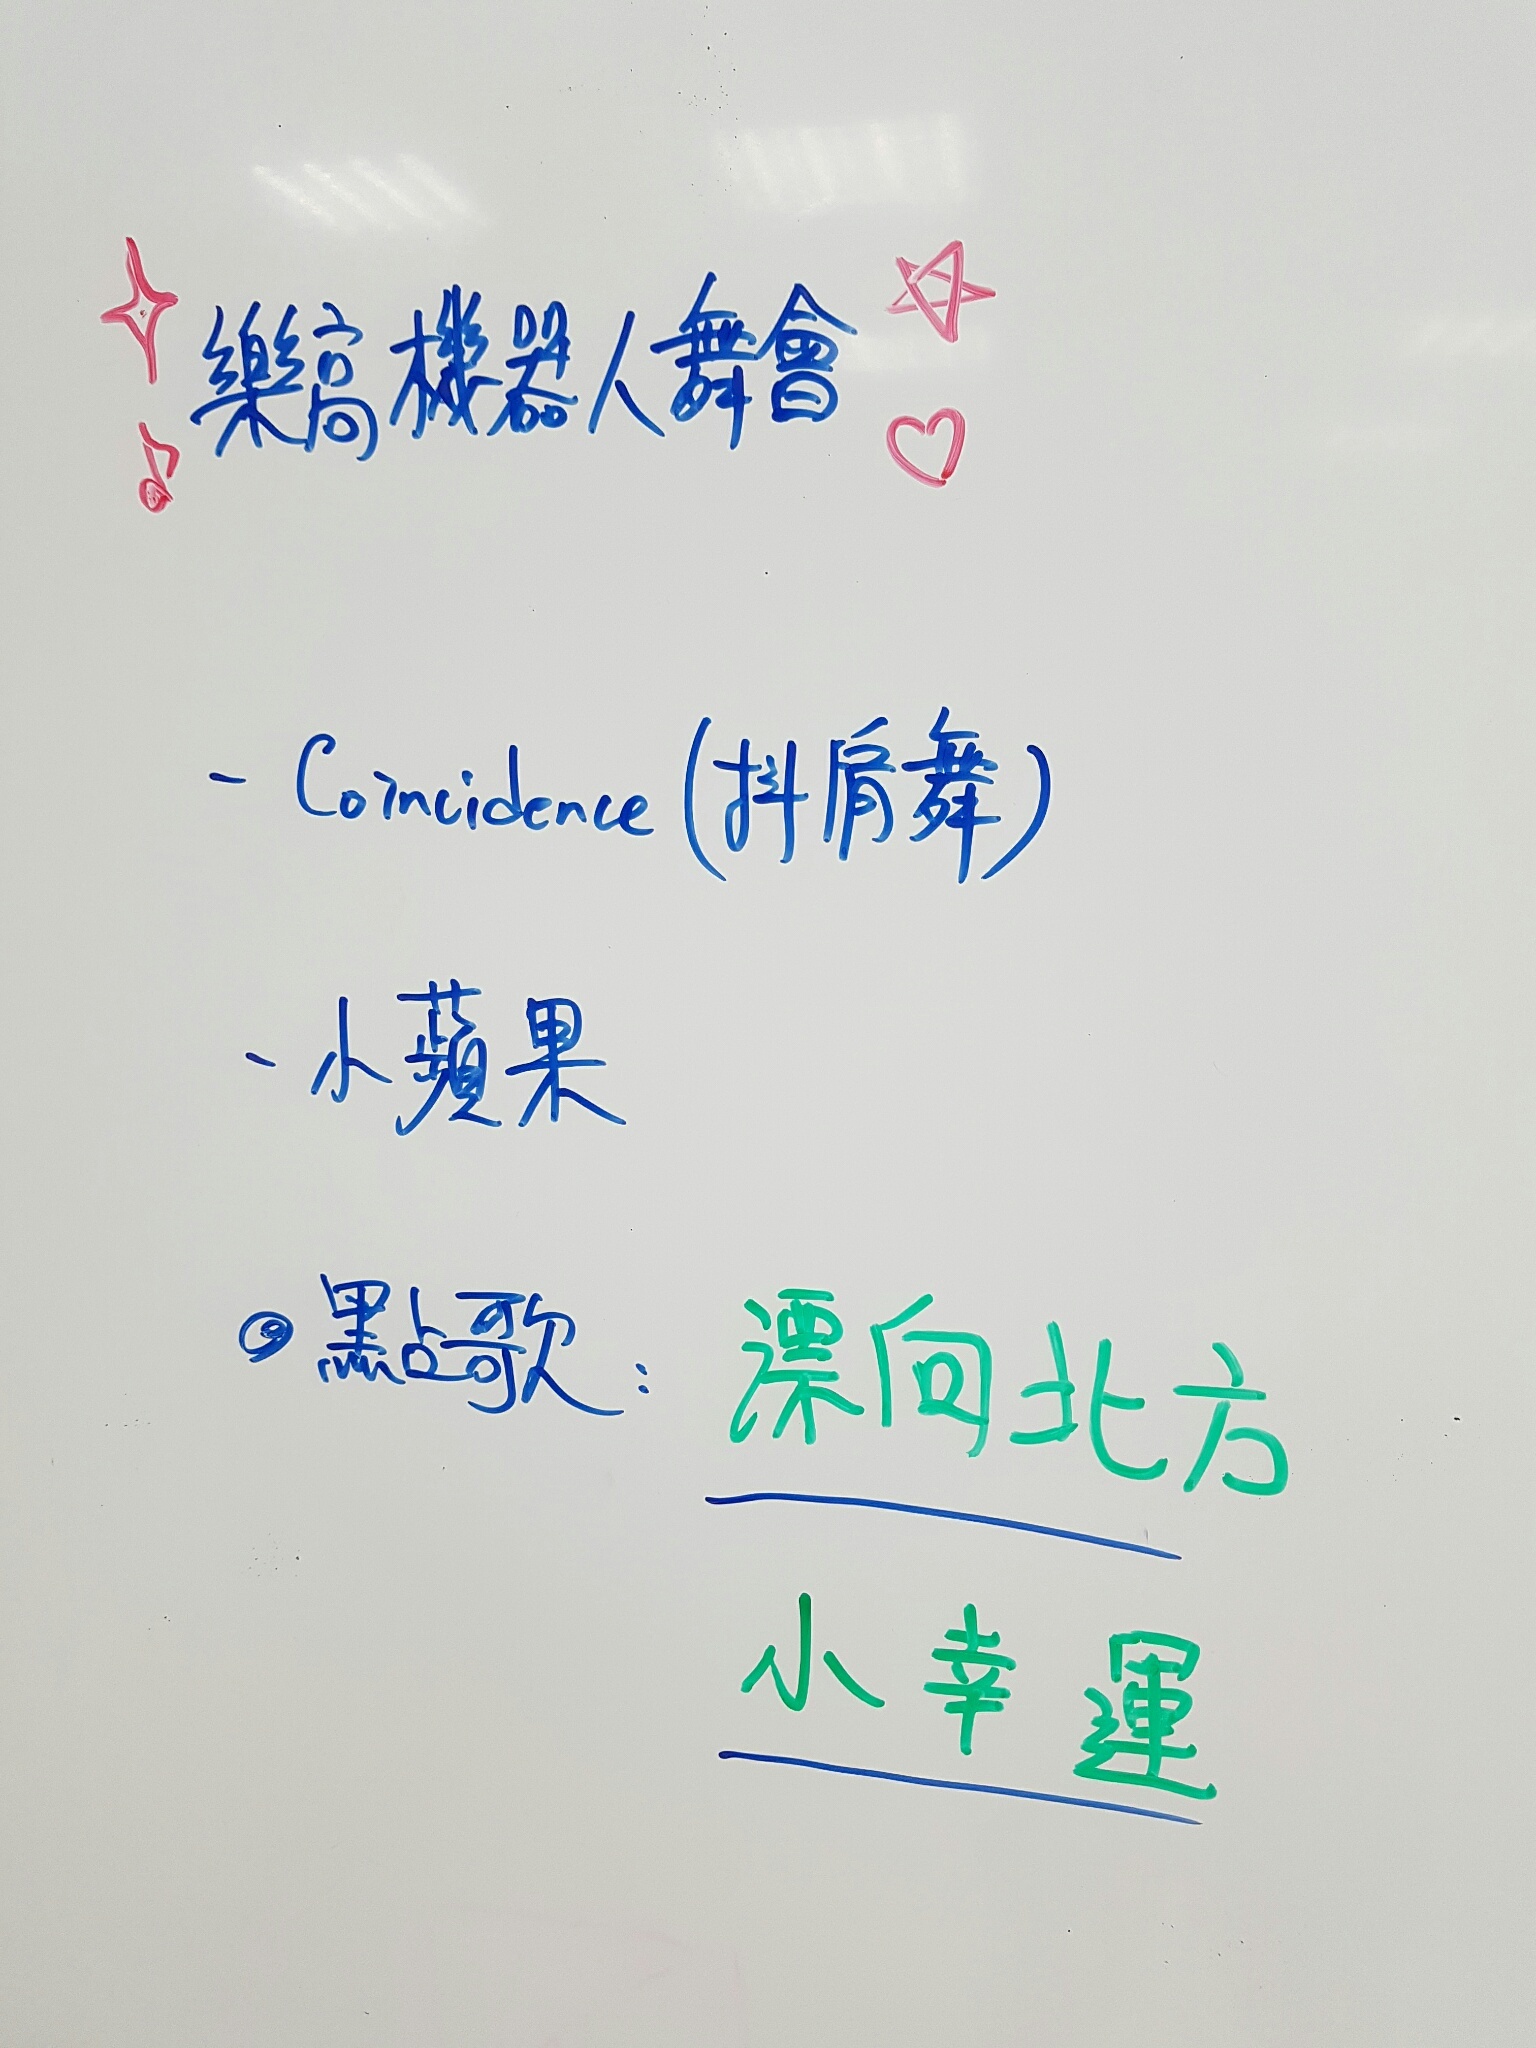 樂高機器人舞會
- Coincidence (抖肩舞)
- 小蘋果
點歌: 漂向北方
小幸運